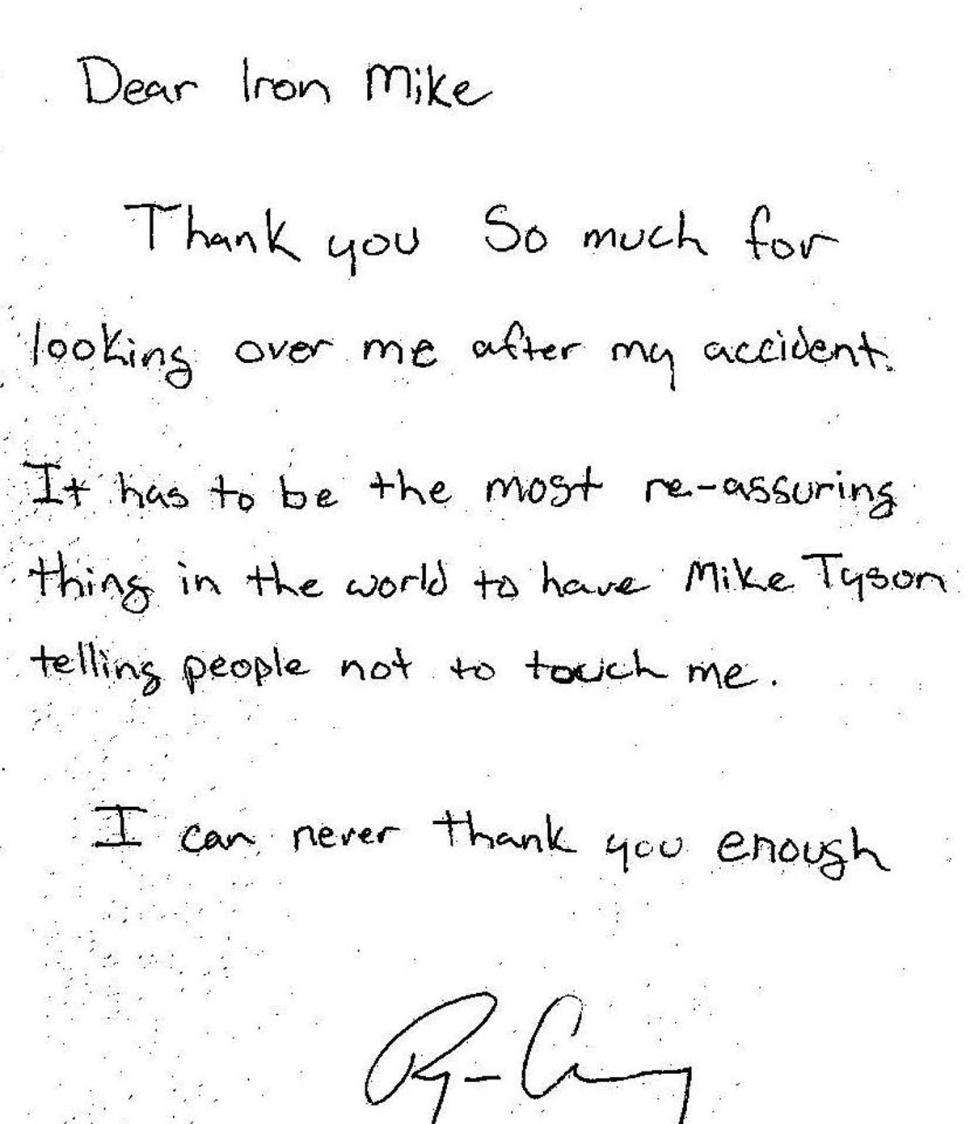 Dear Iron Mike
Thank you So much for
looking over me after my accident.
It has to be the most re-assuring
thing in the world to have Mike Tyson
telling people not to touch me.
I can never thank you enough